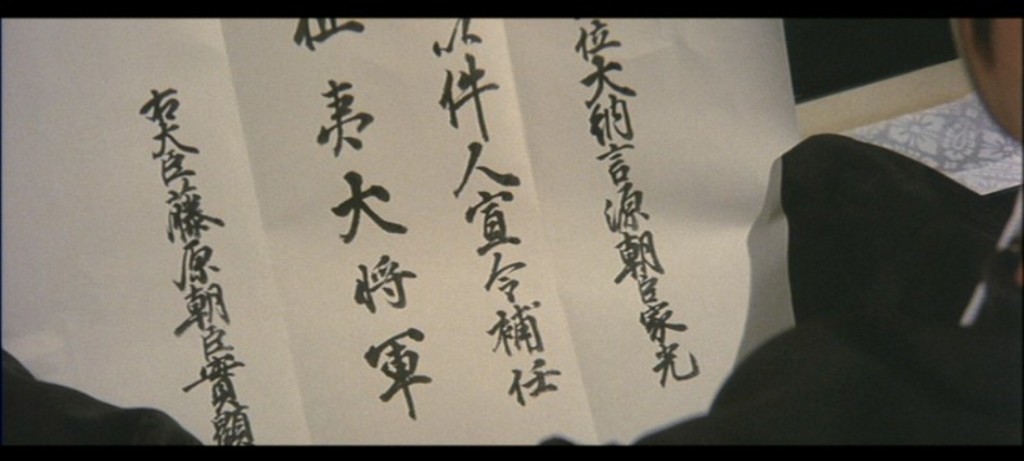 位大納言源朝臣家光
以件人宣令補任
夷大将軍
右大臣藤原朝臣實顕